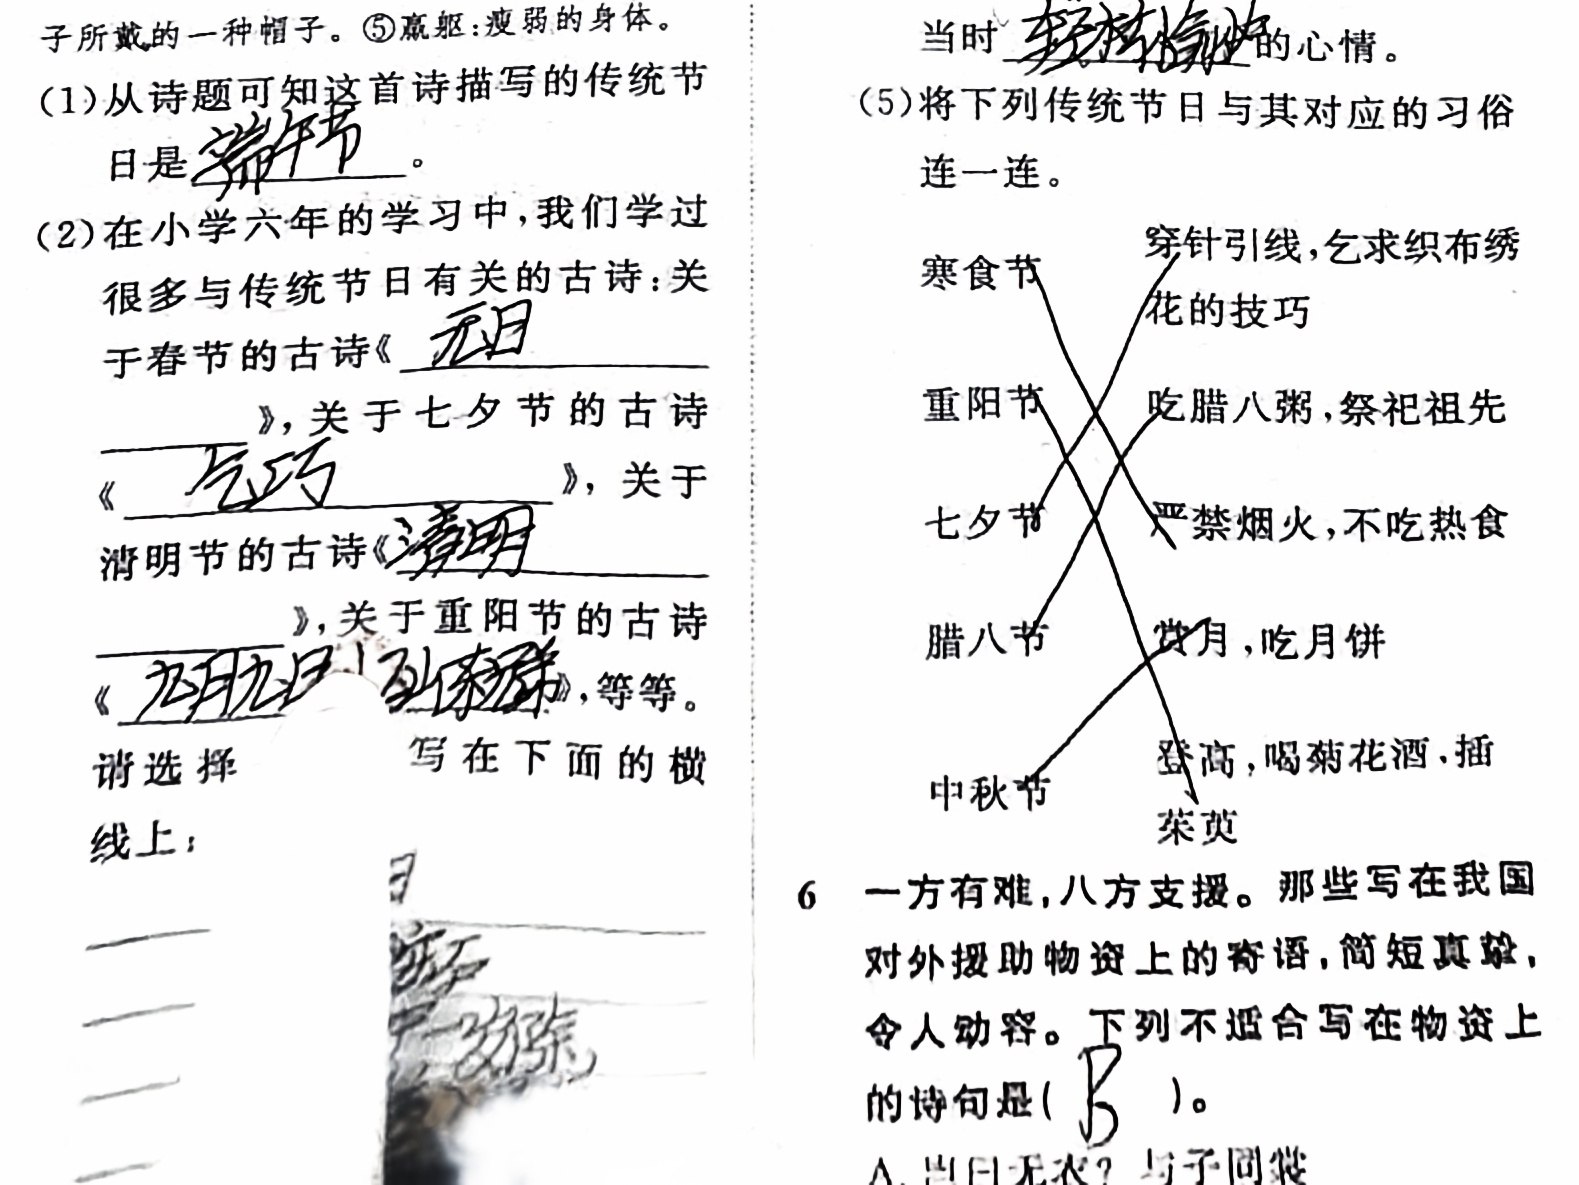 子所戴的一种帽子。⑤羸躯:瘦弱的身体。
(1)从诗题可知这首诗描写的传统节
日是端午节。
(2)在小学六年的学习中,我们学过
很多与传统节日有关的古诗:关
于春节的古诗《元日
》,关于七夕节的古诗
《乞巧》,关于
清明节的古诗《清明
》,关于重阳节的古诗
《九月九日忆山东兄弟》,等等。
请选择 写在下面的横
线上:
当时轻松愉快的心情。
(5)将下列传统节日与其对应的习俗
连一连。
寒食节 穿针引线,乞求织布绣
花的技巧
重阳节 吃腊八粥,祭祀祖先
七夕节 严禁烟火,不吃热食
腊八节 赏月,吃月饼
中秋节 登高,喝菊花酒,插
茱萸
6 一方有难,八方支援。那些写在我国
对外援助物资上的寄语,简短真挚,
令人动容。下列不适合写在物资上
的诗句是( B )。
A.岂曰无衣?与子同裳